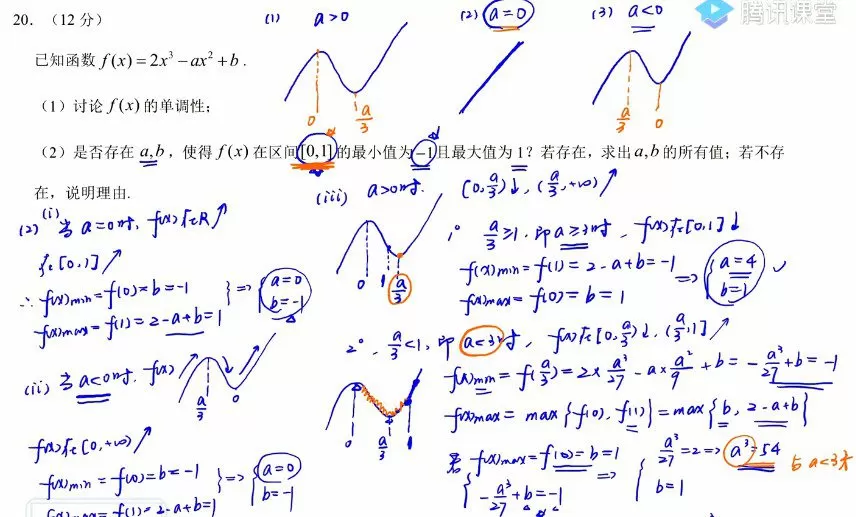 (1) a>0
(2) a=0
(3) a<0
腾讯课堂
20. （12 分）
已知函数 f(x)=2x³−ax²+b.
0
a/3
a/3
0
（1）讨论 f(x) 的单调性；
（2）是否存在 a,b，使得 f(x) 在区间[0,1]的最小值为−1且最大值为1？若存在，求出 a,b 的所有值；若不存
在，说明理由.
(2) (i) 当 a=0时, f(x)在R↗
在[0,1]↗
∴ f(x)min=f(0)=b=−1
f(x)max=f(1)=2−a+b=1 } => { a=0
b=−1
(ii) 当 a<0时, f(x)
a/3
0
f(x)在[0,+∞)↗
f(x)min=f(0)=b=−1
f(x)max=f(1)=2−a+b=1 } => { a=0
b=−1
(iii) a>0时. [0,a/3)↓, (a/3,+∞)↗
0
1
a/3
1° a/3≥1, 即a≥3时, f(x)在[0,1]↓
f(x)min=f(1)=2−a+b=−1
f(x)max=f(0)=b=1 => { a=4
b=1 ✓
2°. a/3<1, 即 a<3时, f(x)在[0,a/3)↓, (a/3,1]↗
0
a/3
1
f(x)min=f(a/3)=2×a³/27−a×a²/9+b=−a³/27+b=−1
f(x)max=max{f(0), f(1)}=max{b, 2−a+b}
若 f(x)max=f(0)=b=1
{ −a³/27+b=−1 => { a³/27=2 => a³=54
b=1
与a<3矛